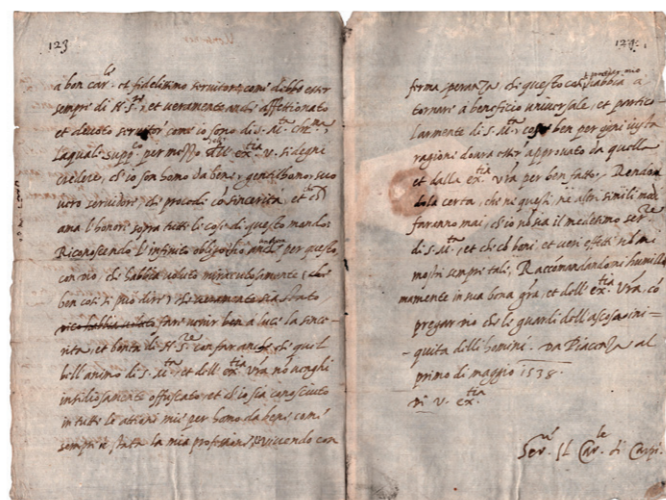 123
à ben car.le et fidelissimo servitore, come debbo esser
sempre di N. S.re, et veramente anche affettionato
et devoto servitor come io sono di S. M.tà Ch.ma,
laqual supp.co per mezzo dell' ex.tia v. si degni
credere, ch'io son homo da bene, gentilhomo, suo
vero servidore, che procedo cō sincerità, et
ama l'honor sopra tutte le cose di questo mondo.
Riconoscendo l'infinito obligo per questo,
con Dio, che habbia voluto miraculosamente,
ben così si può dire, che veramente sia stato
fare venir ben à luce la since-
rità, et bontà di N. S.re con far anche che quel
bell'animo di S. M.tà, et dell' ex.tia Vra nō venghi
insidiosamente offuscato, et ch'io sia conosciuto
in tutte le attioni mie per homo da bene, come
sempre è stata la mia professione. vivendo con
124.
ferma speranza che questo caso s'habbia à
tornare à beneficio universale, et partico
larmente di S. M.tà, ben per ogni
ragioni dovrà esser approvato da quella
et dalla ex.tia Vra per ben fatto, Renden
dola certa, che ne questi, ne altri simili me
faranno mai, ch'io nō sia il medesimo ser.re
di S. M.tà, et che cō boni, et veri effetti nō me
mostri sempre tale, Raccomandandomi humilis
mamente in sua bona gr̄a, et dell' ex.tia Vra, cō
pregar Dio che le guardi dell' ascosa ini-
-quità delli homini. Da Piacenza al
primo di maggio 1538.
Di V. ex.tia
Ser.re Il Car.le di Carpi.